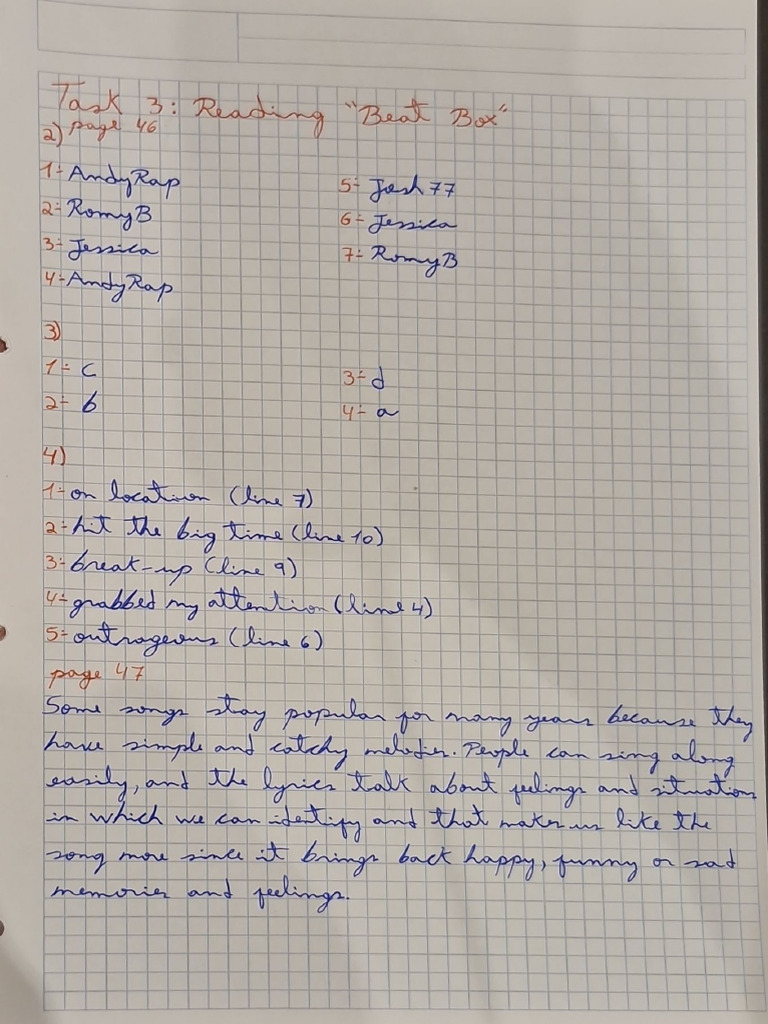 Task 3: Reading "Beat Box"
2) page 46
1- AndyRap
2- RomyB
3- Jessica
4- AndyRap
5- Josh77
6- Jessica
7- RomyB
3)
1- c
2- b
3- d
4- a
4)
1- on location (line 7)
2- hit the big time (line 10)
3- break-up (line 9)
4- grabbed my attention (line 4)
5- outrageous (line 6)
page 47
Some songs stay popular for many years because they
have simple and catchy melodies. People can sing along
easily, and the lyrics talk about feelings and situations
in which we can identify and that makes us like the
song more since it brings back happy, funny or sad
memories and feelings.